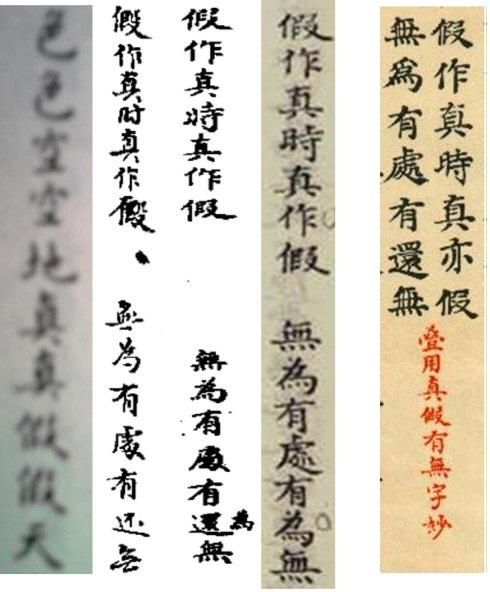 假作真時真亦假
無爲有處有還無
疊用真假有無字妙
假作真時真作假 無為有處有為無
假作真時真作假 無為有處有還無
為
假作真时真作假、無為有處有还無
色色空空地真真假假天